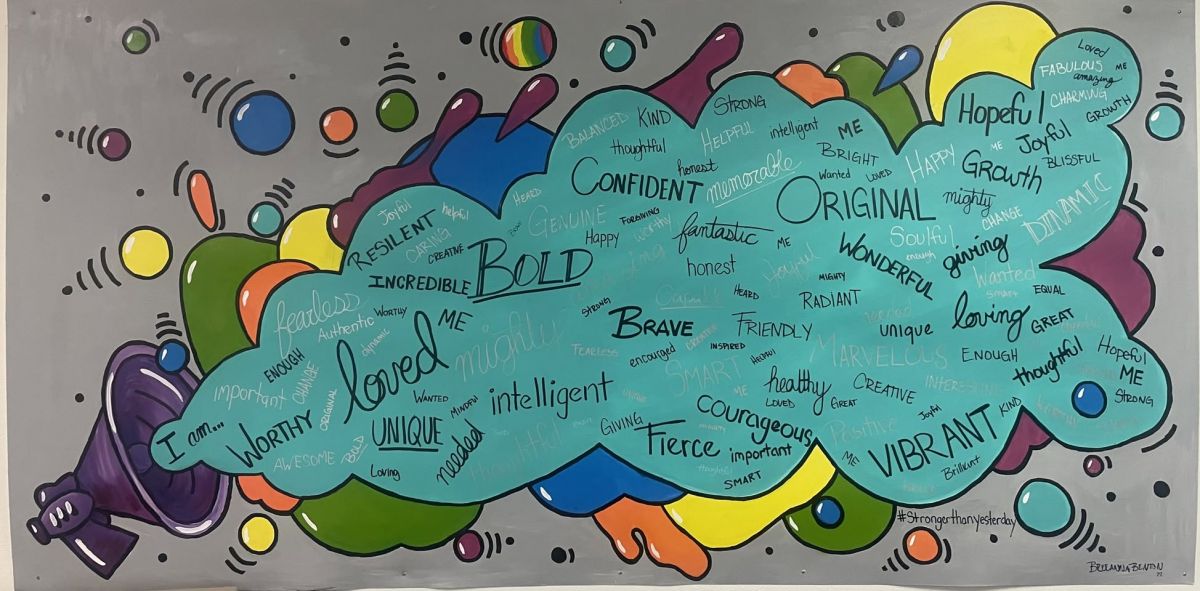 I am...
WORTHY
AWESOME
BOLD
important
ENOUGH
CHANGE
ORIGINAL
fearless
Authentic
WORTHY
dynamic
loved
ME
Loving
UNIQUE
WANTED
MINDFUL
needed
Joyful
helpful
RESILENT
CARING
CREATIVE
INCREDIBLE
BOLD
HEARD
GENUINE
Happy
FORGIVING
worthy
BALANCED
KIND
STRONG
thoughtful
HELPFUL
intelligent
ME
honest
CONFIDENT
memorable
BRIGHT
Wanted
LOVED
HAPPY
ORIGINAL
fantastic
ME
honest
Joyful
MIGHTY
HEARD
RADIANT
WONDERFUL
Soulful
enough
giving
mighty
CHANGE
DYNAMIC
Hopeful
ME
Growth
Joyful
BLISSFUL
Loved
FABULOUS
ME
amazing
CHARMING
GROWTH
Wanted
SMART
EQUAL
mighty
STRONG
BRAVE
FRIENDLY
CREATIVE
INSPIRED
encouraged
FEARLESS
HELPFUL
SMART
ME
intelligent
thoughtful
GIVING
Fierce
courageous
important
thoughtful
SMART
healthy
LOVED
GREAT
CREATIVE
MARVELOUS
unique
loving
GREAT
ENOUGH
INTERESTING
thoughtful
Hopeful
ME
STRONG
Joyful
KIND
Positive
ME
VIBRANT
Brilliant
#Strongerthanyesterday
BREEANNA BENTON